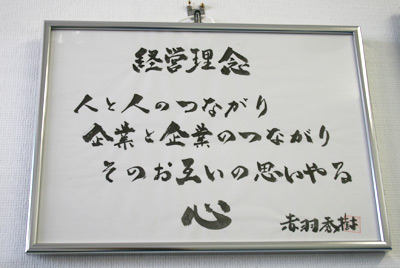 経営理念
人と人のつながり
企業と企業のつながり
そのお互いの思いやる
心
赤羽秀樹